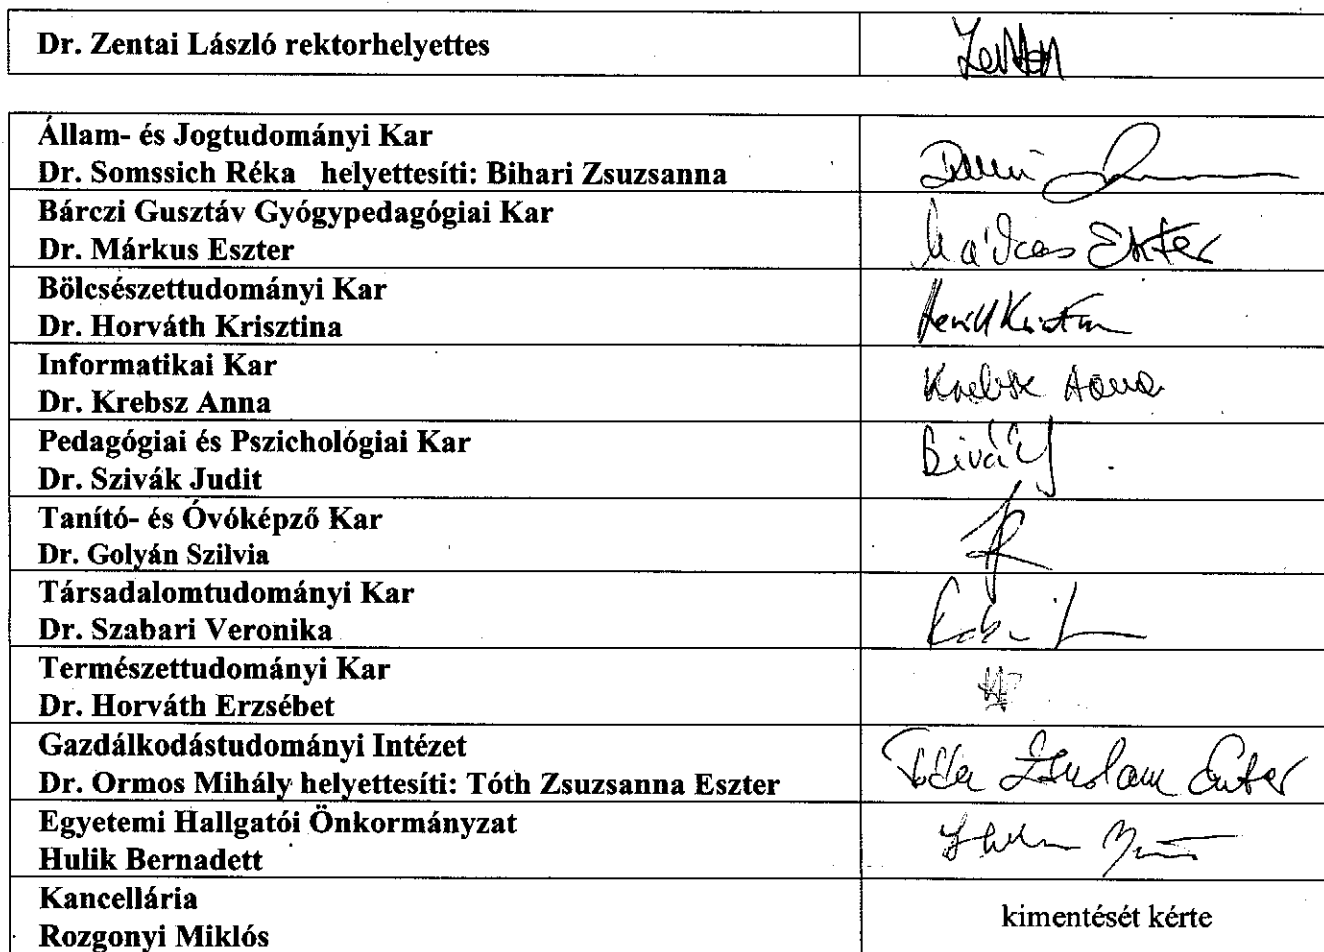 Dr. Zentai László rektorhelyettes
Állam- és Jogtudományi Kar
Dr. Somssich Réka helyettesíti: Bihari Zsuzsanna
Bárczi Gusztáv Gyógypedagógiai Kar
Dr. Márkus Eszter
Bölcsészettudományi Kar
Dr. Horváth Krisztina
Informatikai Kar
Dr. Krebsz Anna
Krebsz Anna
Pedagógiai és Pszichológiai Kar
Dr. Szivák Judit
Tanító- és Óvóképző Kar
Dr. Golyán Szilvia
Társadalomtudományi Kar
Dr. Szabari Veronika
Természettudományi Kar
Dr. Horváth Erzsébet
Gazdálkodástudományi Intézet
Dr. Ormos Mihály helyettesíti: Tóth Zsuzsanna Eszter
Egyetemi Hallgatói Önkormányzat
Hulik Bernadett
Kancellária
Rozgonyi Miklós
kimentését kérte